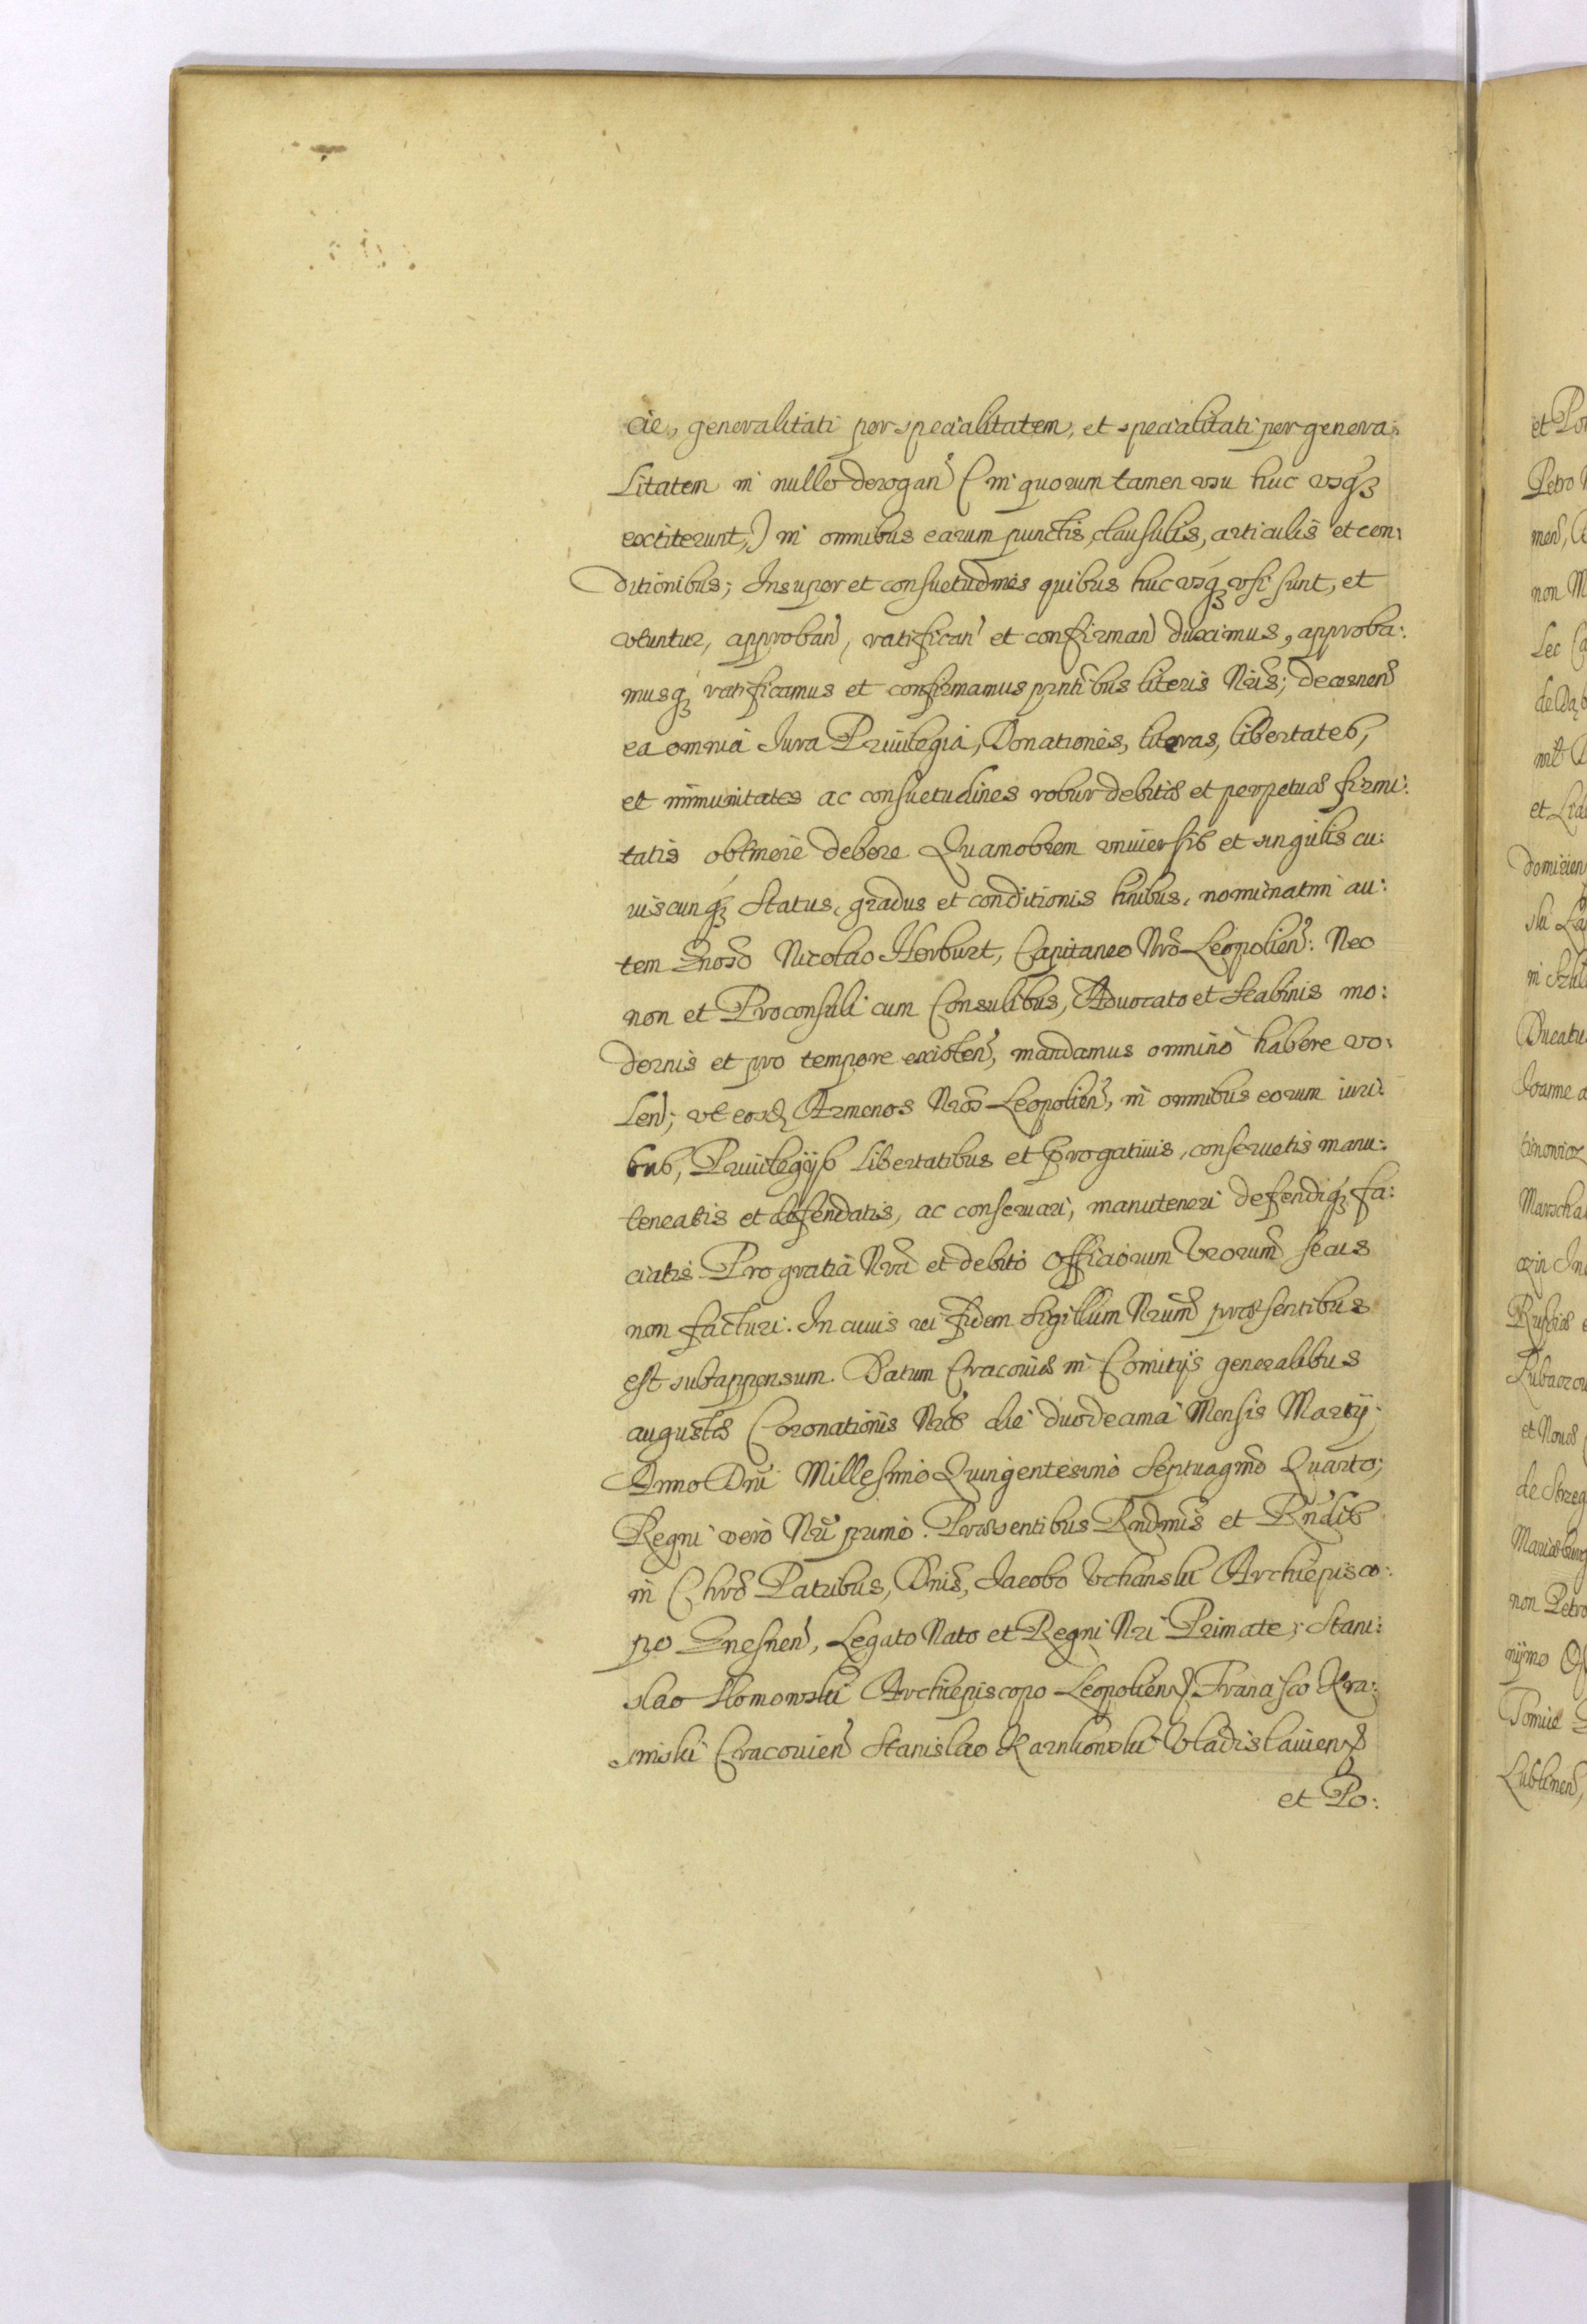 cie, generalitati per specialitatem, et specialitati per genera:
litatem in nullo derogan̄ (in quorum tamen usu huc usq́ꝫ
extiterunt,) in omnibus earum punctis, clausulis, articulis et con:
ditionibus; Insuper et consuetudines quibus huc usq́ꝫ usi sunt, et
utuntur, approban̄, ratifican̄ et confirman̄ duximus, approba:
musq́ꝫ ratificamus et confirmamus pr̄ntibus literis Nr̄is; decernen̄
ea omnia Iura Priuilegia, Donationes, literas, libertates,
et immunitates ac consuetudines robur debitæ et perpetuæ firmi:
tatis obtinere debere Quamobrem vniuersis et singulis cu:
iuscunq́ꝫ Status, gradus et conditionis hn̄ibus, nominatim au:
tem Gnoso Nicolao Herburt, Capitaneo Nr̄o Leopolien̄: Nec
non et Proconsuli cum Consulibus, Aduocato et Scabinis mo:
dernis et pro tempore existen̄, mandamus omnino habere vo:
len̄; ut eosd Armenos Nr̄os Leopolien̄, in omnibus eorum iuri:
bus, Priuilegijs Libertatibus et Prrogatiuis, conseruetis manu:
teneatis et defendatis, ac conseruari, manuteneri defendiq́ꝫ fa:
ciatis Pro gratia Nr̄a et debito Officiorum Vr̄orum secus
non facturi. In cuius rei fidem Sigillum Nr̄um præsentibus
est subappensum. Datum Cracouiæ in Comitijs generalibus
augustæ Coronationis Nr̄æ die duodecima Mensis Martij
Anno Dn̄i Millesimo Quingentesimo Septuagmo Quarto;
Regni vero Nr̄i primo. Præsentibus Rn̄dmis et Rn̄dis
in Chr̄o Patribus, Dn̄is, Iacobo Vchanski Archiepisco:
po Gnesnen̄, Legato Nato et Regni Nr̄i Primate; Stani:
slao Slomowski Archiepiscopo Leopolien̄, Francisco Kra:
sinski Cracouien̄ Stanislao Karnkonski Vladislauien̄
et Po:
et Po
Petro
men̄,
non M
Lec Ca
de
et
domirien
ski
in
Ducatu
Ioanne a
tinowicz
Marscha
Russiæ
Lubaczo
et Nouæ
de Strzeg
Mariæburg
non Petro
nymo
Tomice
Lublinen̄,